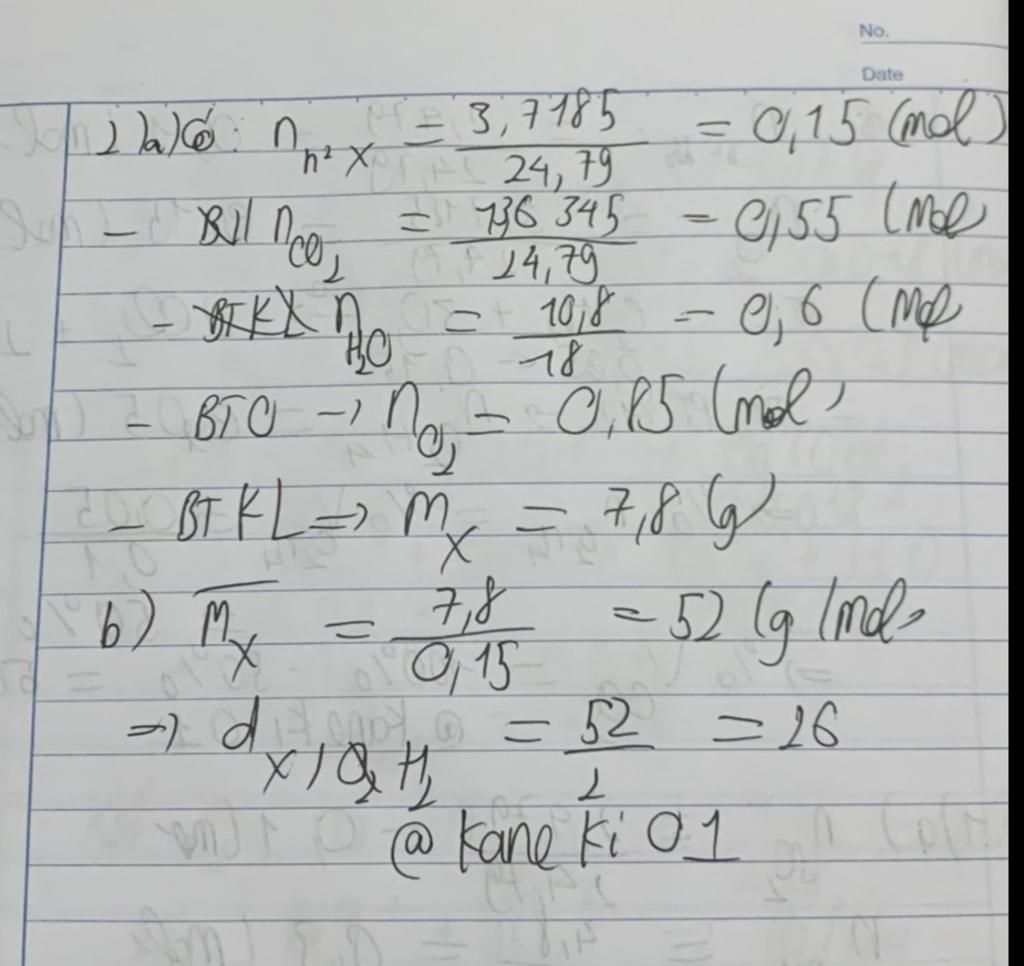 No.
Date
2) a) Có: n hh X = 3,7185 / 24,79 = 0,15 (mol)
- n CO2 = 136345 / 24,79 = 0,55 (mol)
- n H2O = 10,8 / 18 = 0,6 (mol
- BTO → n O2 = 0,85 (mol)
- BTKL => m X = 7,8 (g)
b) M̅ X = 7,8 / 0,15 = 52 (g/mol)
=> d X/H2 = 52 / 2 = 26
@kane ki 01